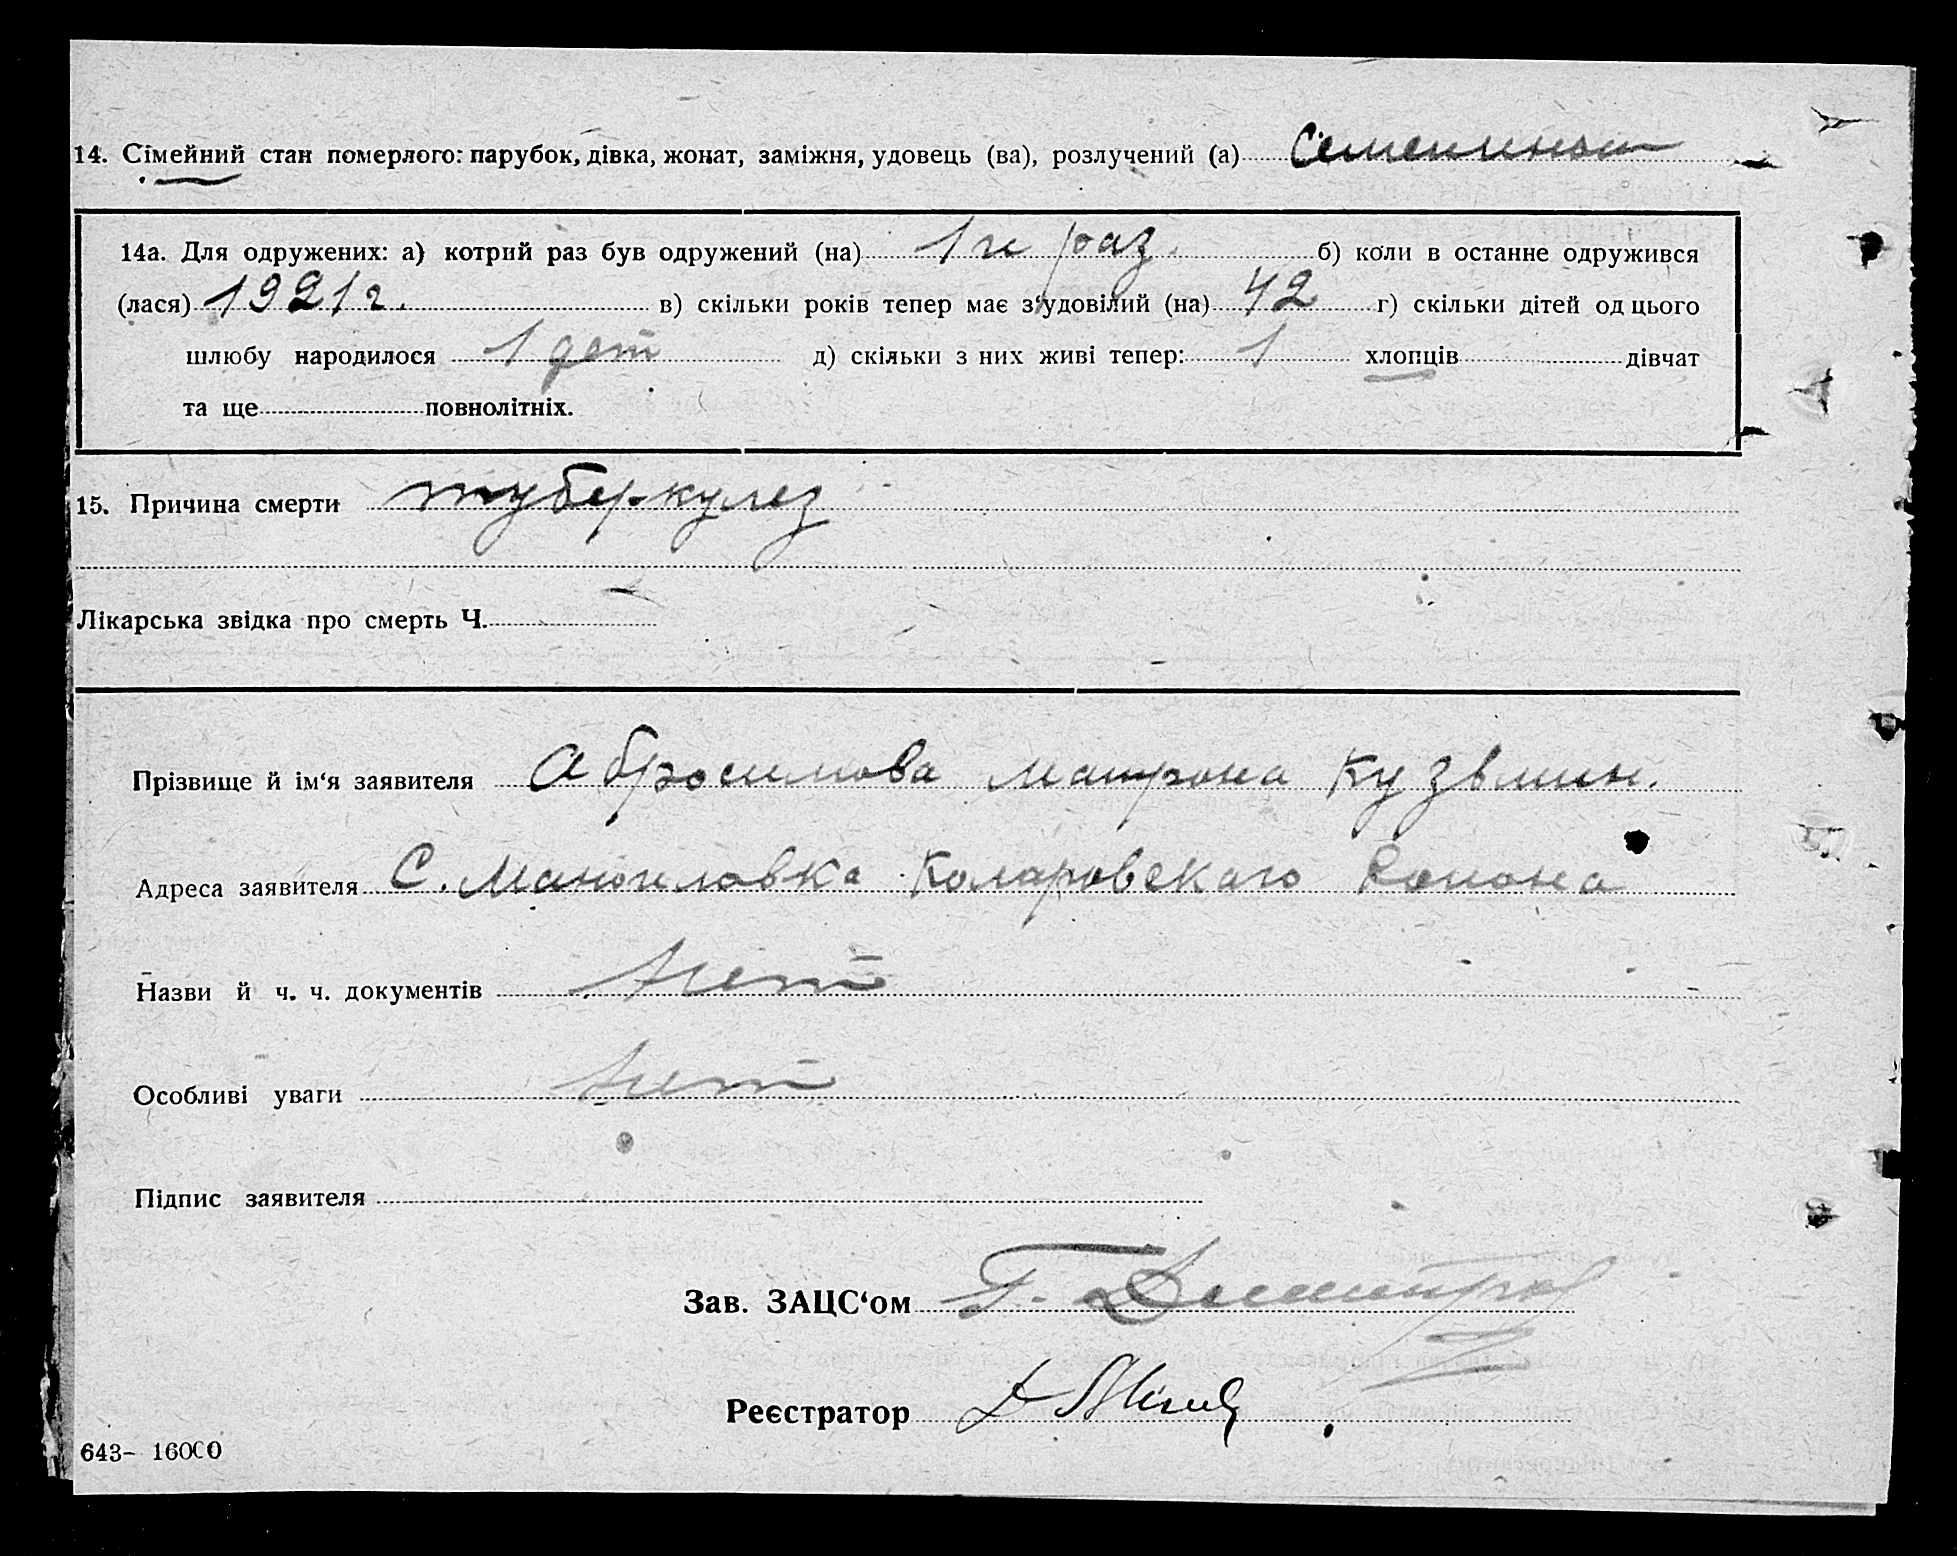 14. Сімейний стан померлого: парубок, дівка, жонат, заміжня, удовець (ва), розлучений (а)
14а. Для одружених: а) котрий раз був одружений (на) 1й раз. б) коли в останнє одружився
(лася) 1921 г. в) скільки років тепер має з'удовілий (на) 42 г) скільки дітей од цього
шлюбу народилося 1 дет д) скільки з них живі тепер: 1 хлопців дівчат
та ще повнолітніх.
15. Причина смерти туберкулез
Лікарська звідка про смерть Ч.
Прізвище й ім'я заявителя Абросимова Матрона Кузьмин.
Адреса заявителя С. Мануиловка Коларовскаго Района
Назви й ч. ч. документів нет
Особливі уваги нет
Підпис заявителя
Зав. ЗАЦС'ом Г. Димитров
Реєстратор
643- 16000